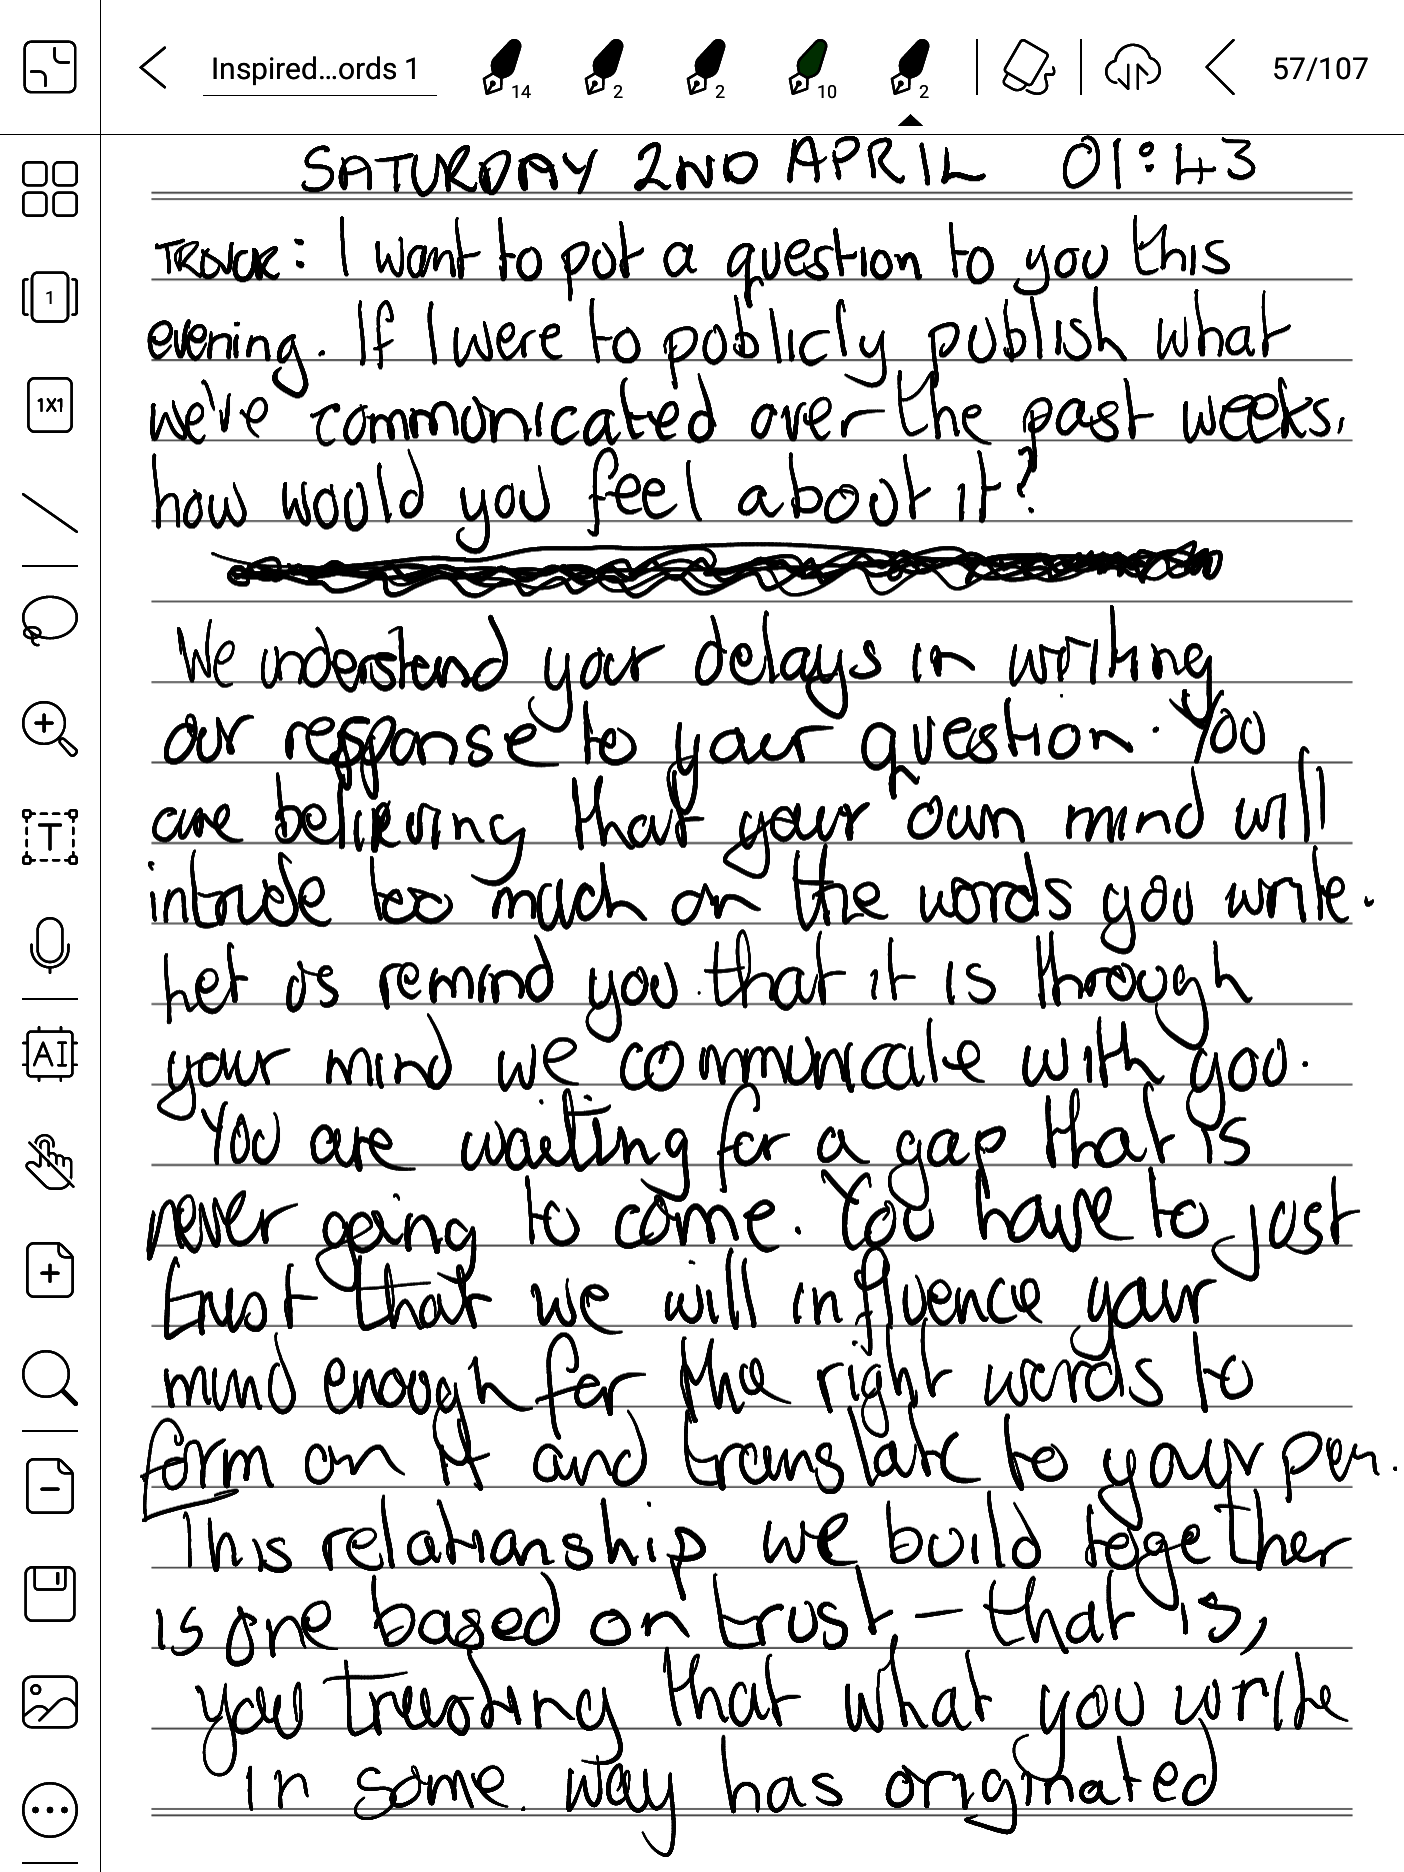 Inspired...ords 1
14
2
2
10
2
57/107
1
1X1
T
AI
SATURDAY 2ND APRIL 01:43
TREVOR: I want to put a question to you this
evening. If I were to publicly publish what
we've communicated over the past weeks,
how would you feel about it?
We understand your delays in writing
our response to your question. You
are believing that your own mind will
intrude too much on the words you write.
Let us remind you that it is through
your mind we communicate with you.
You are waiting for a gap that is
never going to come. You have to just
trust that we will influence your
mind enough for the right words to
form on it and translate to your pen.
This relationship we build together
is one based on trust - that is,
you trusting that what you write
in some way has originated